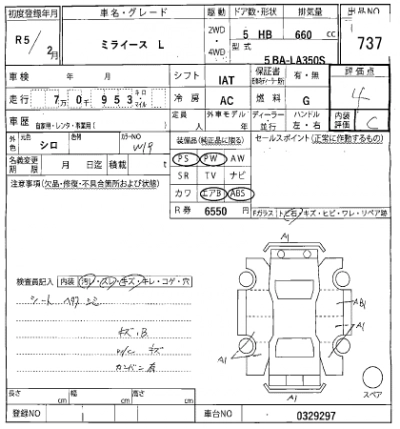 初度登録年月 車名・グレード 駆動 ドア数・形状 排気量 出品NO
R5/2月 ミライース L 2WD・4WD 5 HB 660 cc 737
型式 5BA-LA350S
車検 年 月 シフト IAT 保証書 有・無 評価点 4
走行 7万0千953 キロ・マイル 冷房 AC 燃料 G 内装評価 C
車歴 自家用・レンタ・教習用( ) 定員 人 外車モデル 年 ディーラー・並行 ハンドル 左・右
外色 元色 シロ カラーNO W19 装備品(純正品に限る) セールスポイント(正常に作動するもの)
名義変更期限 月 日迄 積載 t PS PW AW
注意事項(欠品・修復・不具合箇所および状態) SR TV ナビ
カワ エアB ABS
R券 6550 円 Fガラス トビ石・キズ・ヒビ・ワレ・リペア跡
A1
検査員記入 内装 汚レ・スレ・キズ・キレ・コゲ・穴
シート
AB1
キズ、B
A1 A1
キズ
スペア
長さ cm 幅 cm 高さ cm
A1
登録NO 車台NO 0329297